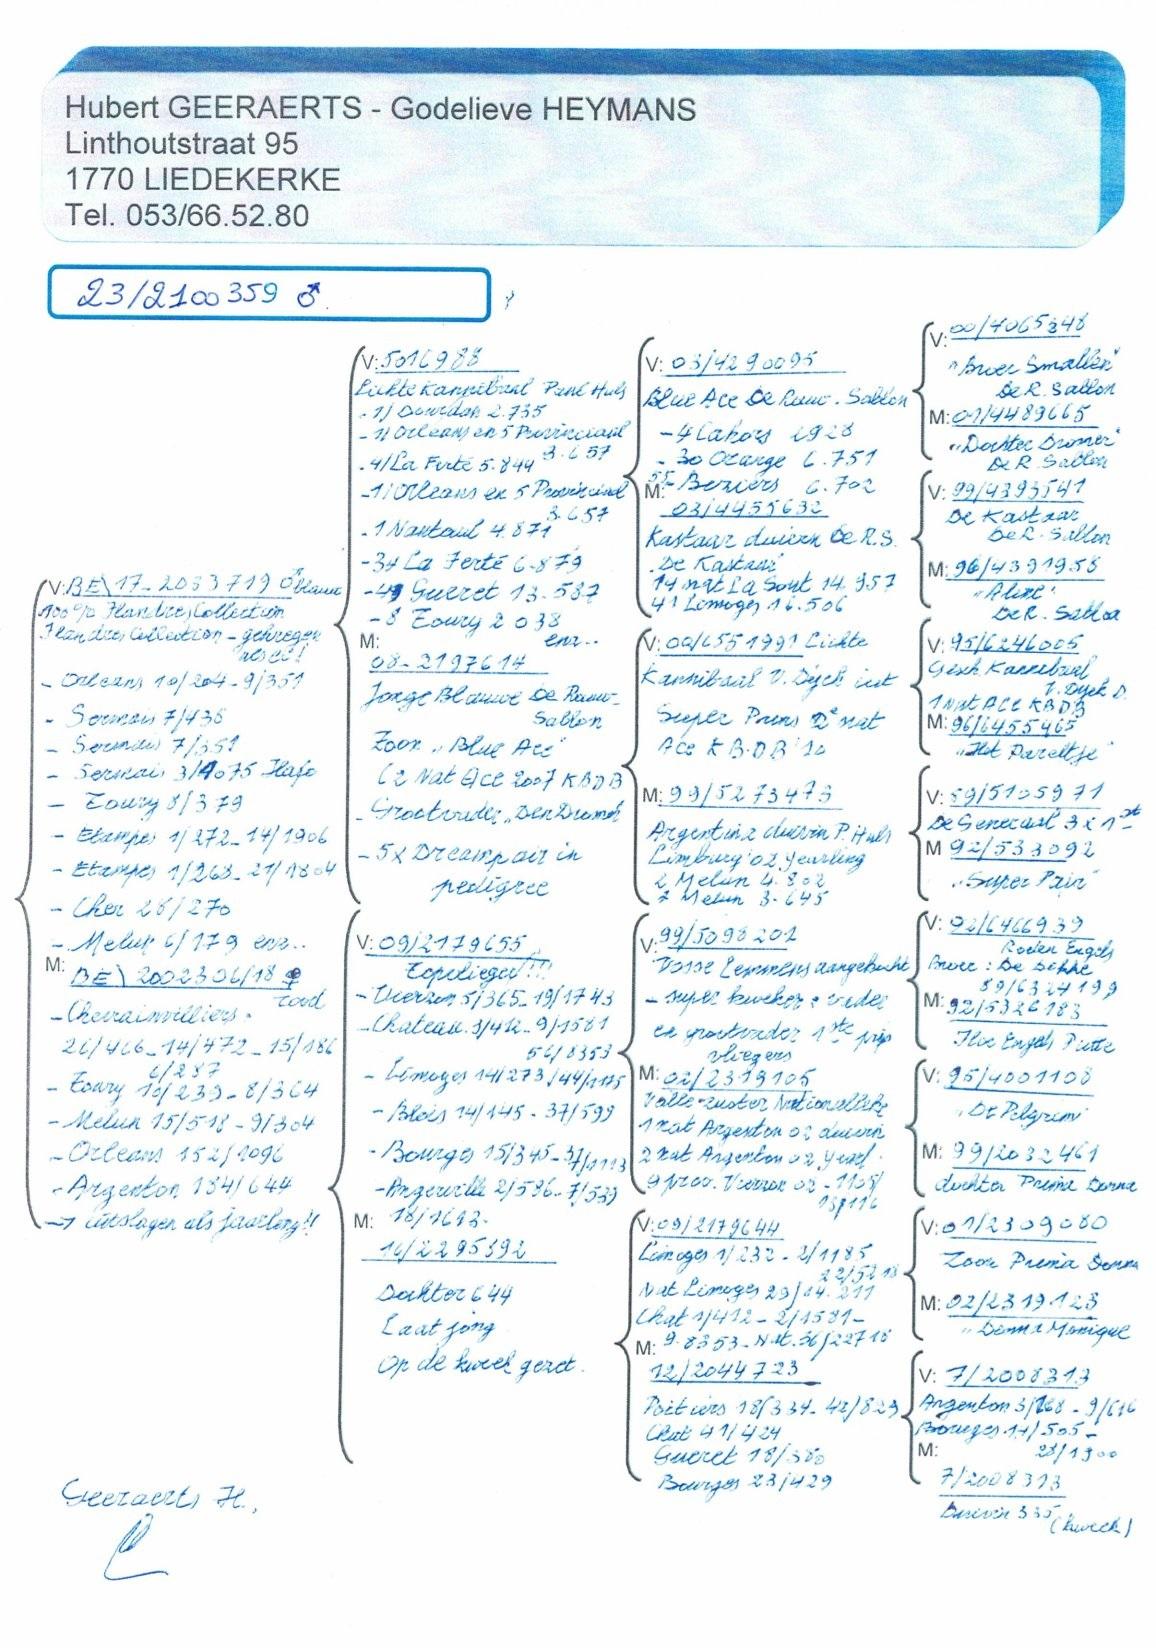 Hubert GEERAERTS - Godelieve HEYMANS
Linthoutstraat 95
1770 LIEDEKERKE
Tel. 053/66.52.80
23/2100359 ♂
V: BE\17-2083719 ♂ blauw
100% Flandres Collection
Flandres Collection - gekregen
als ei!
- Orleans 10/204-9/351
- Sermais 7/438
- Sermais 7/351
- Sermais 3/1075 Hafo
- Toury 8/379
- Etampes 1/272-14/1906
- Etampes 1/268-21/1804
- Cher 26/270
- Melun 6/179 enz..
M: BE\2002306/18 ♀
rood
- Chevrainvilliers -
26/466-14/472-15/186
6/287
- Toury 10/239-8/364
- Melun 15/518-9/304
- Orleans 152/1096
- Argenton 184/644
→ uitslagen als jaarling!!
V: 5016988
Lichte Kannibaal Paul Huls
- 1/Dourdan 2.735
- 1/Orleans en 5 Provinciaal
3.657
- 4/La Ferté 5.844
- 1/Orleans en 5 Provinciaal
3.657
- 1 Nanteuil 4.871
- 34 La Ferté 6.879
- 49 Gueret 13.587
- 8 Toury 2038
enz..
M:
08-2197614
Jonge Blauwe De Rauw-
Sablon
Zoon "Blue Ace"
(2 Nat Ace 2007 KBDB
- Grootvader "Den Dromer
- 5x Dreampair in
pedigree
V: 09/2179655
Topvlieger!!!
- Vierzon 5/365-19/1743
- Chateau. 3/412-9/1581
56/8353
- Limoges 14/273/44/1175
- Blois 14/145-37/599
- Bourges 15/345-37/1113
- Angerville 2/586-7/539
M: 18/1613.
16/2295392
Dochter 644
Laat jong
Op de kweek gezet.
V: 03/4290095
Blue Ace De Rauw-Sablon
- 4 Cahors 1928
- 30 Orange 6.751
55 Beziers 6.702
M:
03/4455632
Kastaar duivin De R.S.
"De Kastaar"
14 nat La Sout 14.957
41 Limoges 16.506
V: 00/6551991 Lichte
Kannibaal V. Dyck uit
Super Prins 2e nat
Ace KBDB '10
M: 99/5273473
Argentina duivin P. Huls
Limburg '02 Yearling
2 Melun 4.802
7 Melun 3.645
V: 99/5098201
Vosse Lemmens aangekocht
- super kweker : vader
en grootvader 1ste prijs
vliegers
M: 02/2319105
Volle zuster Nationalleke
1 nat Argenton 02 duivin
2 nat Argenton 02 Yearl.
9 prov. Vierzon 02 - 1105/
138/116
V: 09/2179644
Limoges 1/232-2/1185
22/5218
Nat Limoges 29/04.211
Chat 1/412-2/1581-
M: 9.8353-Nat.36/22718
12/2044723
Poitiers 18/334-42/823
Chat 41/424
Gueret 18/380
Bourges 23/429
V: 00/4065348
"Broer Smallen"
De R. Sablon
M: 01/4489665
"Dochter Dromer"
De R. Sablon
V: 99/4393541
De Kastaar
De R. Sablon
M: 96/4391958
"Aline"
De R. Sablon
V: 95/6246005
Gesch Kannibaal
V. Dyck D.
1 Nat Ace KBDB
M: 96/6455465
"Het Pareltje"
V: 59/5105971
De Generaal 3 x 1st
M 92/533092
"Super Pair"
V: 02/6466939
Roden Engels
Broer : De Dikke
89/6324199
M: 92/5326183
Ilse Engels Putte
V: 95/4001108
"De Pelgrim"
M: 99/2032461
dochter Prima Donna
V: 01/2309080
Zoon Prima Donna
M: 02/2319123
"Donna Monique
V: 7/2008313
Argenton 3/168-9/616
Bourges 14/505-
M: 28/1900
7/2008313
Duivin 335
(kweek)
Geeraerts H.,